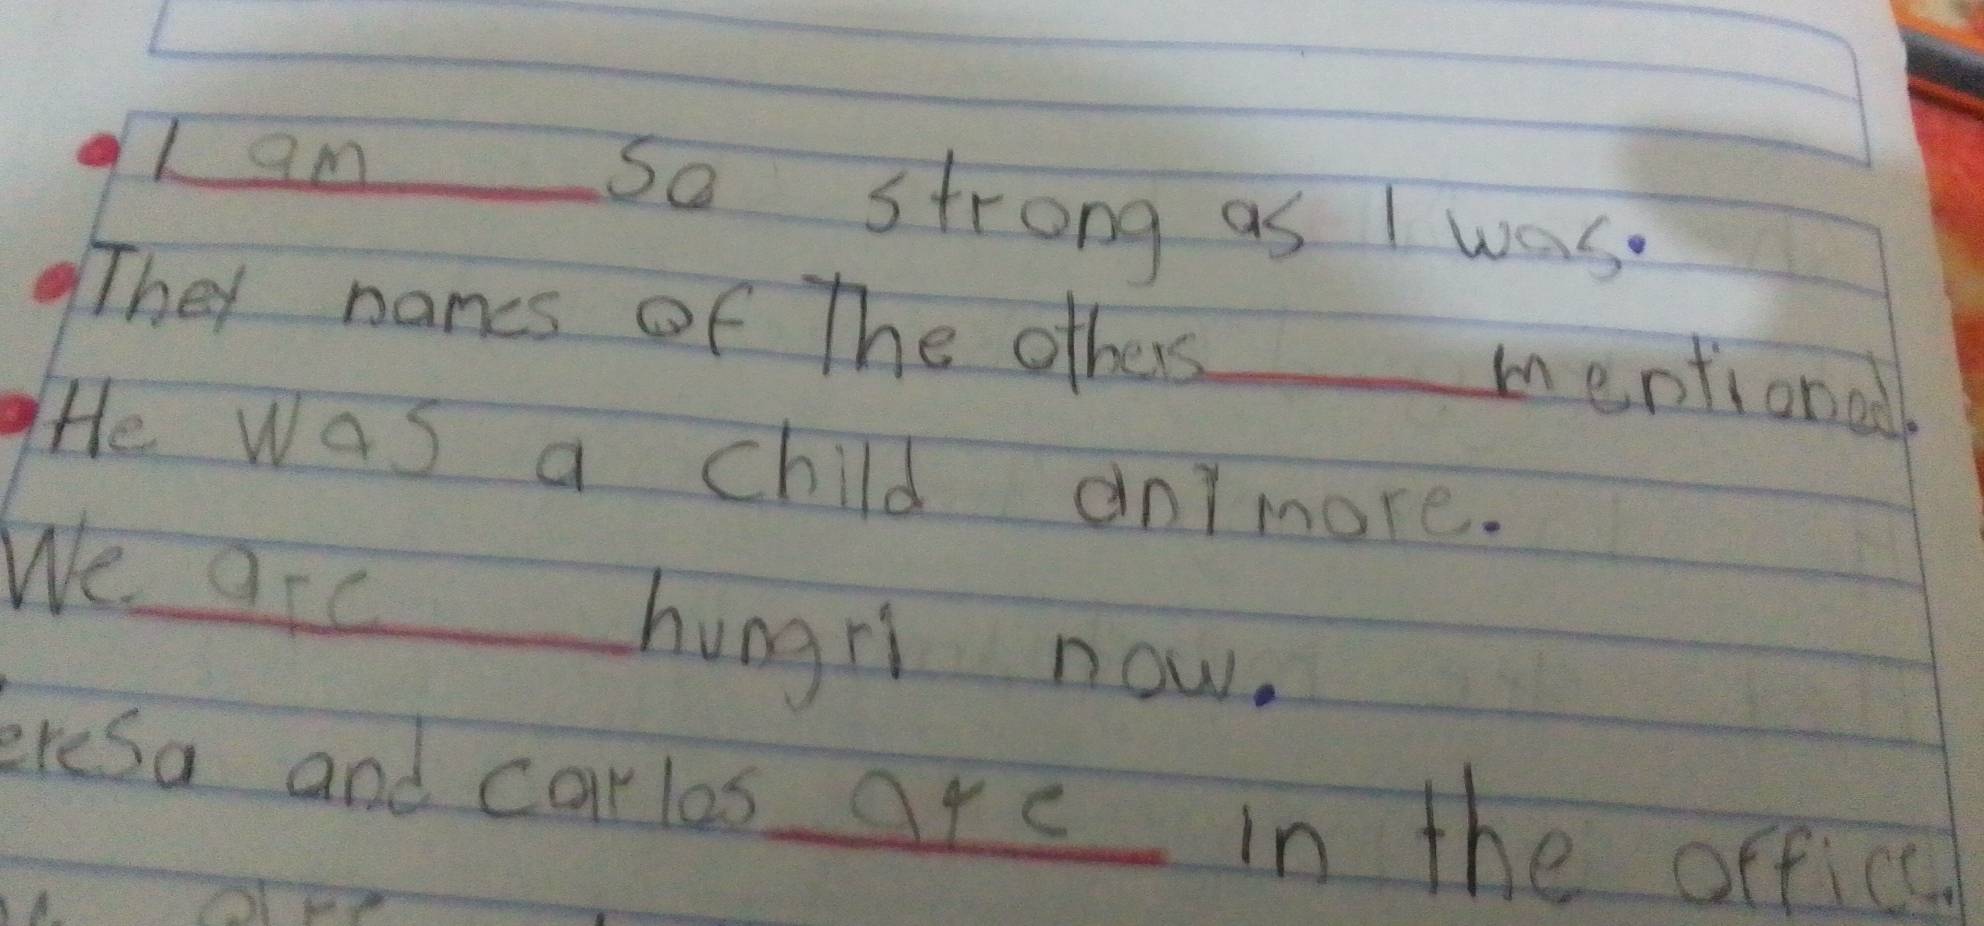 I am so strong as I was.
They names of The others mentioned.
He was a child anymore.
We are hungri now.
eresa and carlos are in the office.